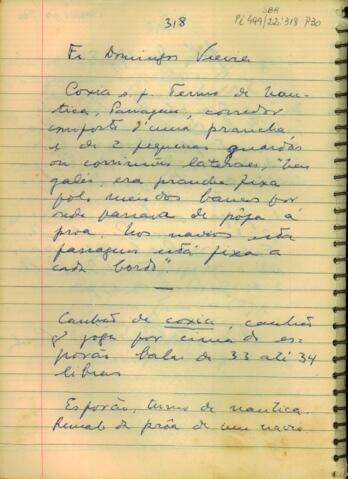 318
SBH
Pi 499/22:318 P30
Fr. Domingos Vieira
Coxia s. f. Termo de nau-
tica. Passagem, corredor
composto d'uma prancha
e de 2 pequenas guardas
ou corrimãos lateraes, "nas
galés, era prancha fixa
pelo meio dos bancos por
onde passava de pôpa á
proa. Nos navios esta
passagem está fixa a
cada bordo"
Canhão de coxia, canhão
q' joga por cima do es-
porão balas de 33 até 34
libras
Esporão, termo de nautica.
Remate da prôa de um navio